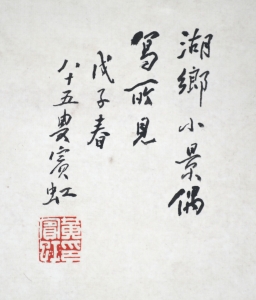 湖鄉小景偶
寫所見
戊子春
八十五叟賓虹
黃賓虹印